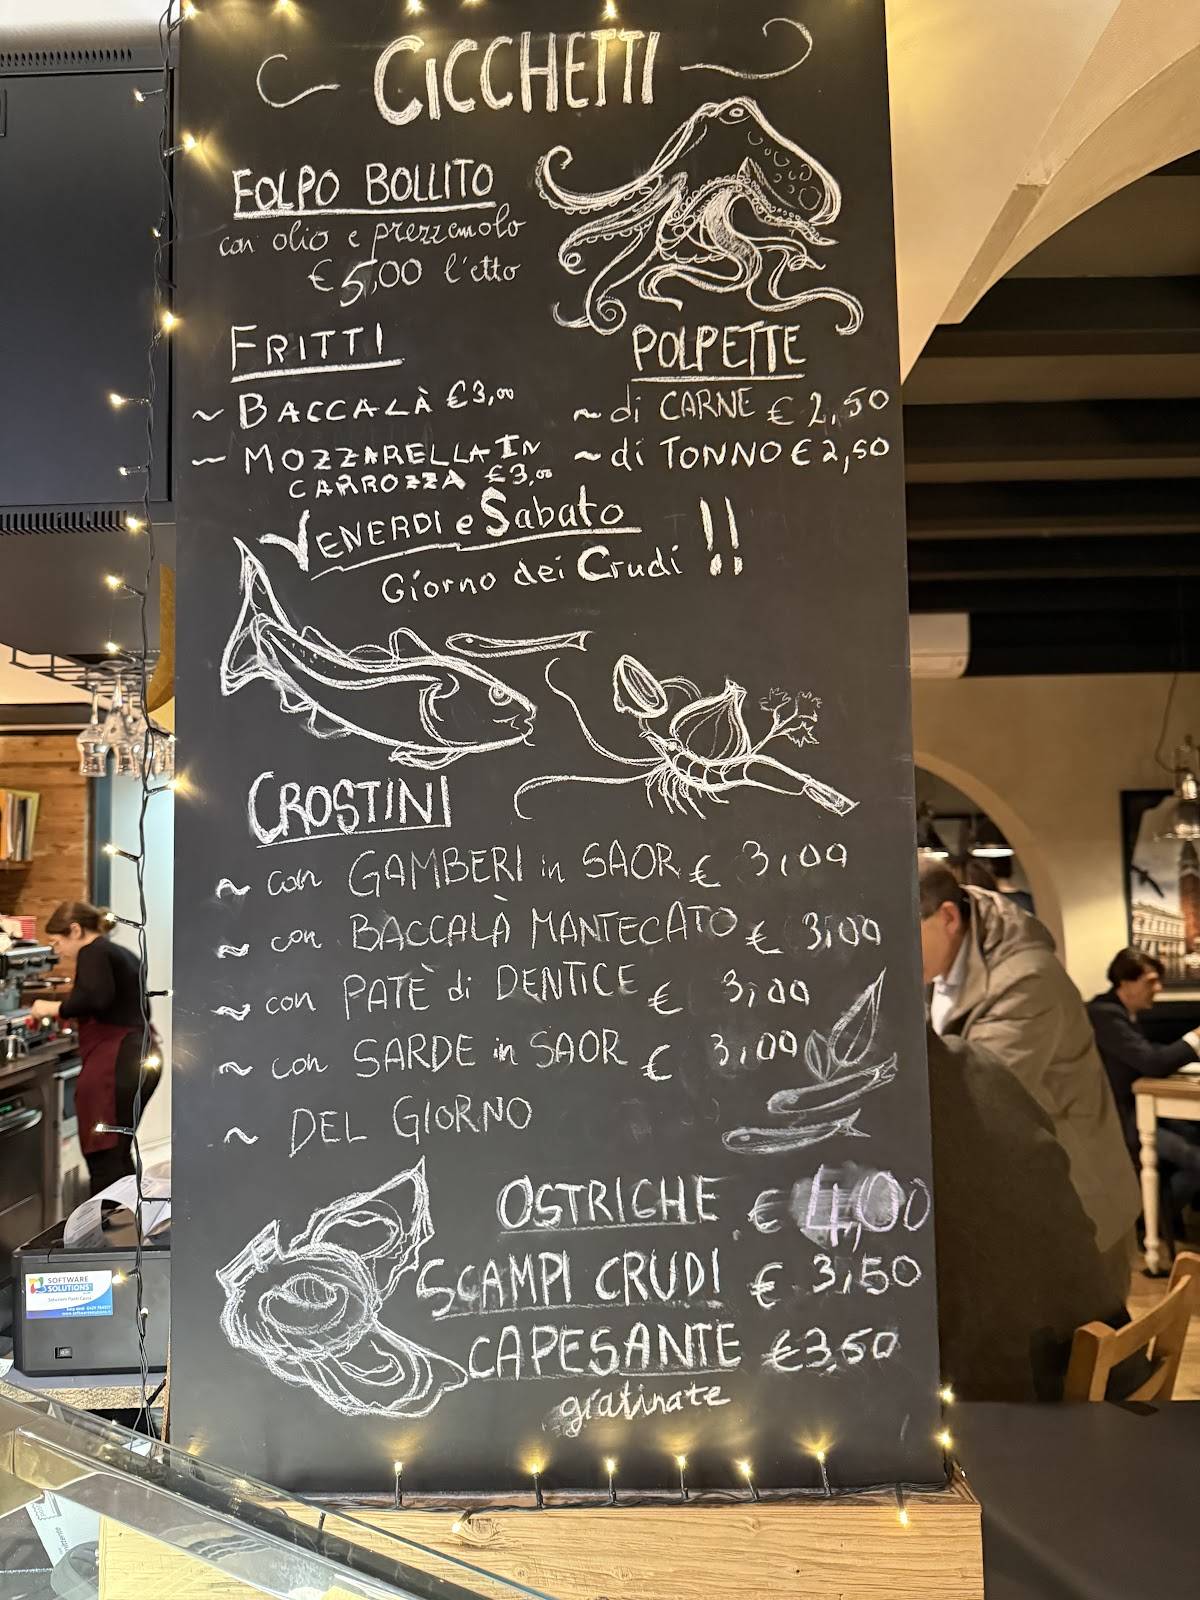 CICCHETTI
FOLPO BOLLITO
con olio e prezzemolo
€ 5,00 l'etto
FRITTI
~ BACCALÀ € 3,00
~ MOZZARELLA IN
CARROZZA € 3,00
POLPETTE
~ di CARNE € 2,50
~ di TONNO € 2,50
VENERDI e Sabato
Giorno dei Crudi !!
CROSTINI
~ con GAMBERI in SAOR € 3,00
~ con BACCALÀ MANTECATO € 3,00
~ con PATÈ di DENTICE € 3,00
~ con SARDE in SAOR € 3,00
~ DEL GIORNO
OSTRICHE € 4,00
SCAMPI CRUDI € 3,50
CAPESANTE € 3,50
gratinate
SOFTWARE
SOLUTIONS